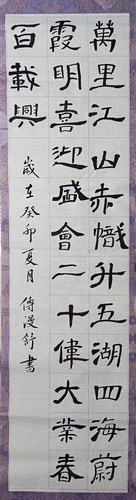 萬里江山赤幟升五湖四海蔚
霞明喜迎盛會二十偉大業春
百載興
歲在癸卯夏月 傅漫舒書